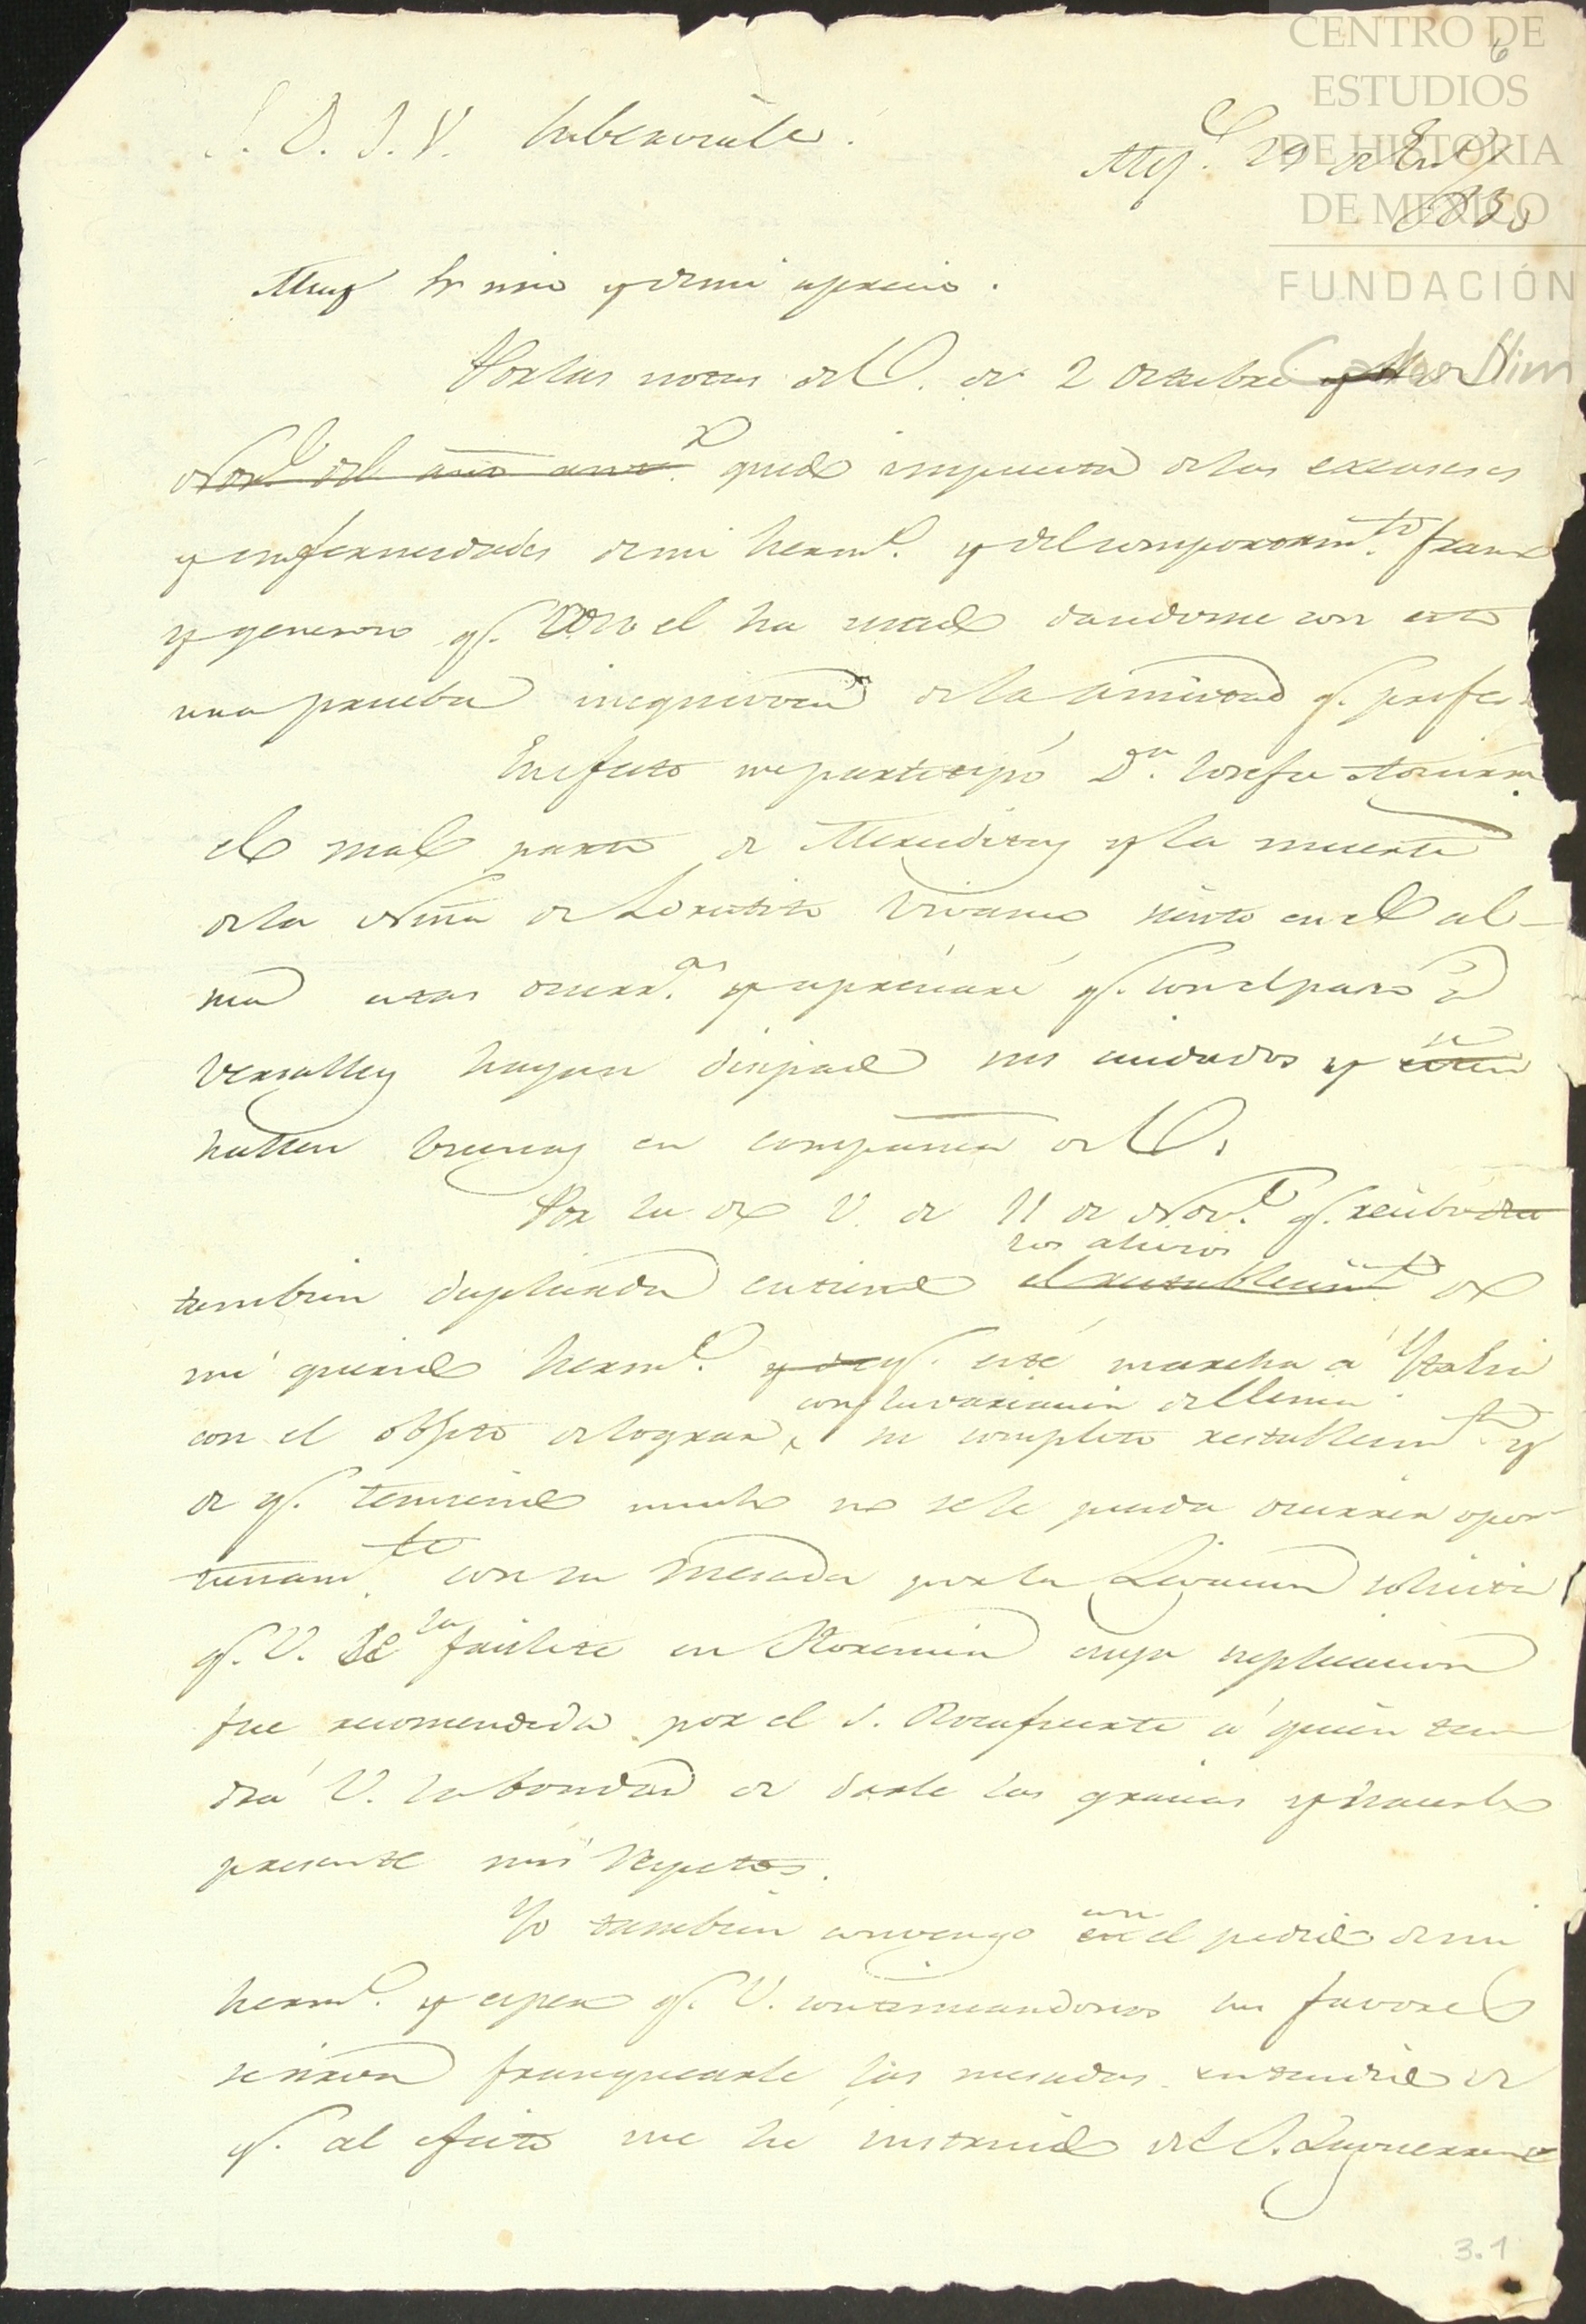 CENTRO DE
ESTUDIOS
DE HISTORIA
DE MEXICO
FUNDACIÓN
Carlos Slim
6
S. D. J. V.
Mexº. 29 de En.º
830
Muy Sr mio y de mi aprecio.
Por las notas de V. de 2 Octubre y
Nov.e del año ant.r quedo impuesto de las escaseses
y enfermedades de mi herm.o y del comportam.to franco
y generoso q. con el ha usado dandome con esto
una prueba inequivoca de la amistad q. profesa
En efecto me participó D.n
el mal parto de y la muerte
de la Niña de Loretito Vivanco siento en el al-
ma estas ocurr.as y apreciaré q. con el paseo á
Versalles hayan disipado sus cuidados y se
hallen buenas en compañia de V.
Por la de V. de 11 de Nov.e q. recibi
tambien duplicada entiendo los alivios el restablecim.to de
mi querido herm.o y q. este marcha á Ytalia
con el objeto de lograr con la variacion de clima su completo restablecim.to y
de q. temiendo mucho no se le pueda ocurrir opor-
tunam.te con su mesada por la Legacion solicita
q. V. se la facilite en Florencia cuya suplicacion
fue recomendada por el S. Rocafuerte á quien ten-
drá V. la bondad de darle las gracias y hacerle
presente mis respetos.
Yo tambien convengo con el pedido de mi
herm.o y espero q. V. continuandonos sus favores
se sirva franquearle las mesadas entendido de
q. al efecto me he instruido del S.
3.1